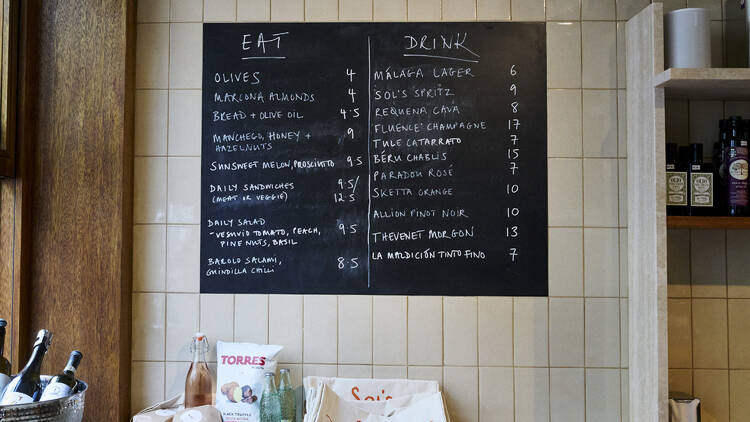 EAT
OLIVES 4
MARCONA ALMONDS 4
BREAD + OLIVE OIL 4.5
MANCHEGO, HONEY + 9
HAZELNUTS
SUNSWEET MELON, PROSCIUTTO 9.5
DAILY SANDWICHES 9.5/
(MEAT OR VEGGIE) 12.5
DAILY SALAD
- VESUVIO TOMATO, PEACH, 9.5
PINE NUTS, BASIL
BAROLO SALAMI, 8.5
GUINDILLA CHILLI
DRINK
MÁLAGA LAGER 6
SOL'S SPRITZ 9
REQUENA CAVA 8
FLUENCE CHAMPAGNE 17
TULE CATARRATO 7
BÉRU CHABLIS 15
PARADOU ROSÉ 7
SKETTA ORANGE 10
ALLION PINOT NOIR 10
THEVENET MORGON 13
LA MALDICIÓN TINTO FINO 7
TORRES
BLACK TRUFFLE
Sol's
OLIO
OLIO